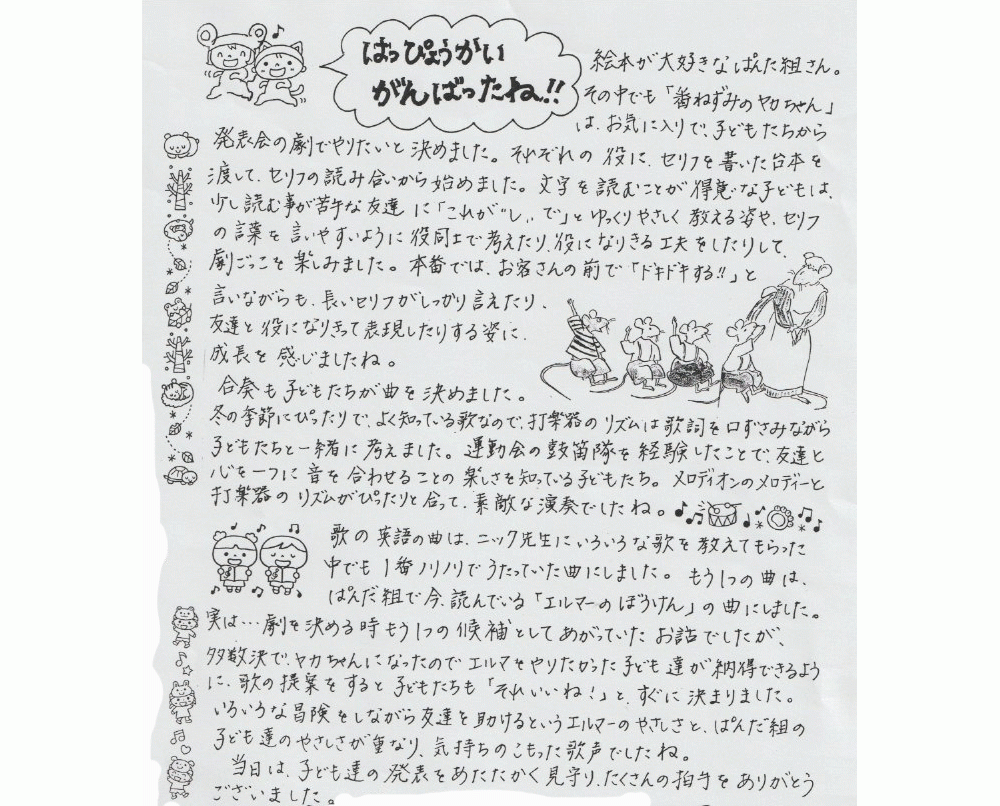 はっぴょうかい
がんばったね!!
絵本が大好きなぱんだ組さん。
その中でも「番ねずみのヤカちゃん」
は、お気に入りで、子どもたちから
発表会の劇でやりたいと決めました。それぞれの役に、セリフを書いた台本を
渡して、セリフの読み合いから始めました。文字を読むことが得意な子どもは、
少し読む事が苦手な友達に「これが"し"で」とゆっくりやさしく教える姿や、セリフ
の言葉を言いやすいように役同士で考えたり、役になりきる工夫をしたりして、
劇ごっこを楽しみました。本番では、お客さんの前で「ドキドキする!!」と
言いながらも、長いセリフがしっかり言えたり、
友達と役になりきって表現したりする姿に、
成長を感じましたね。
合奏も子どもたちが曲を決めました。
冬の季節にぴったりで、よく知っている歌なので、打楽器のリズムは歌詞を口ずさみながら
子どもたちと一緒に考えました。運動会の鼓笛隊を経験したことで、友達と
心を一つに音を合わせることの楽しさを知っている子どもたち。メロディオンのメロディーと
打楽器のリズムがぴったりと合って、素敵な演奏でしたね。
歌の英語の曲は、ニック先生にいろいろな歌を教えてもらった
中でも1番ノリノリでうたっていた曲にしました。もう1つの曲は、
ぱんだ組で今、読んでいる「エルマーのぼうけん」の曲にしました。
実は…劇を決める時もう1つの候補としてあがっていたお話でしたが、
多数決で、ヤカちゃんになったのでエルマをやりたかった子ども達が納得できるよう
に、歌の提案をすると子どもたちも「それいいね!」と、すぐに決まりました。
いろいろな冒険をしながら友達を助けるというエルマーのやさしさと、ぱんだ組の
子ども達のやさしさが重なり、気持ちのこもった歌声でしたね。
当日は、子ども達の発表をあたたかく見守り、たくさんの拍手をありがとう
ございました。